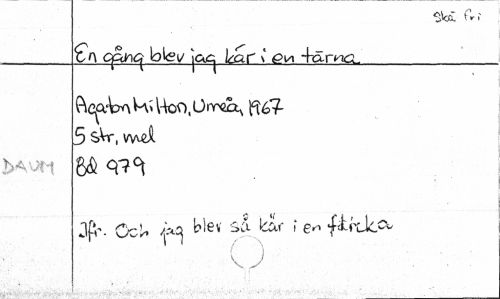 Skä fri
En gång blev jag kär i en tärna
Agaton Milton, Umeå, 1967
5 str, mel
DAUM Bd 979
Jfr. Och jag blev så kär i en flicka